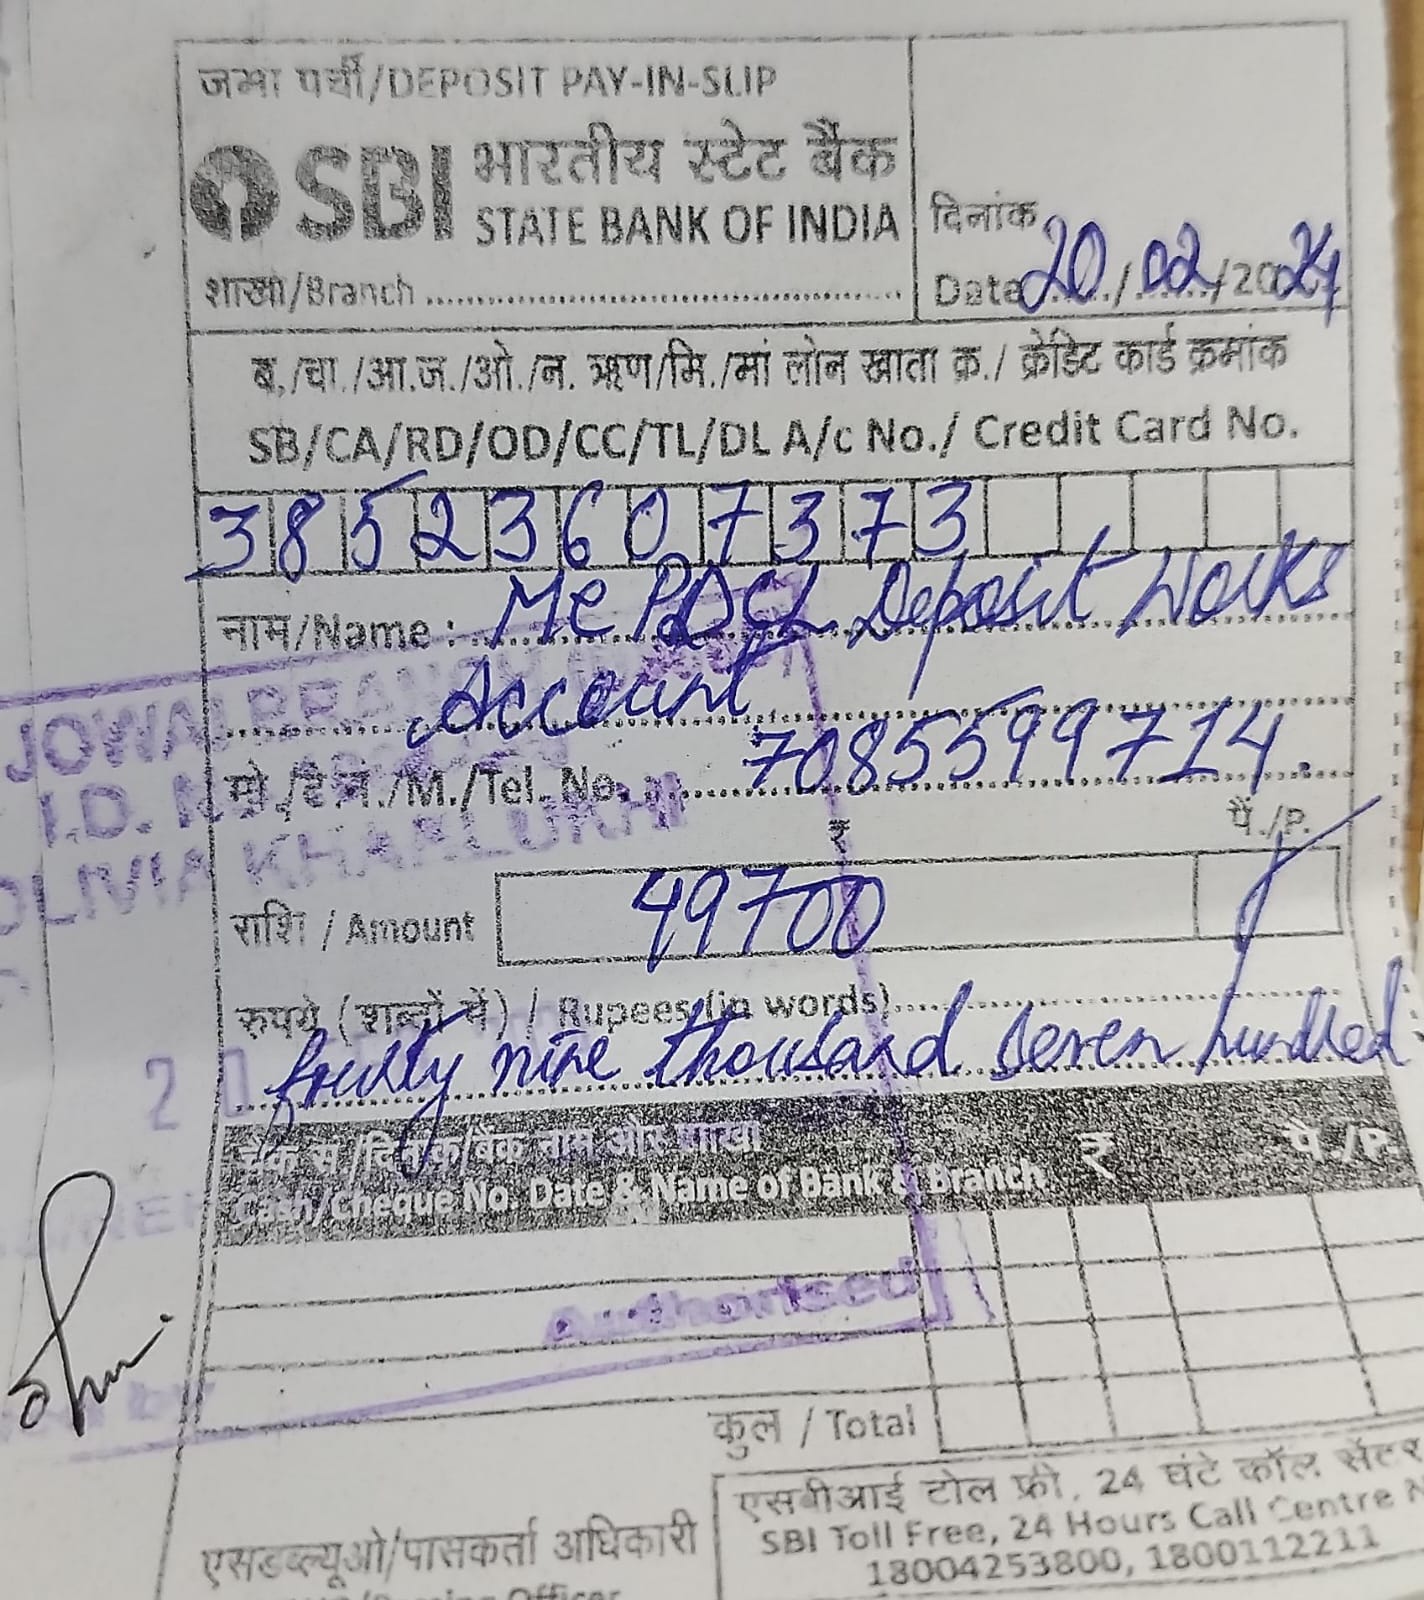 जमा पर्ची/DEPOSIT PAY-IN-SLIP
SBI भारतीय स्टेट बैंक
STATE BANK OF INDIA
शाखा/Branch
दिनांक
Date 20/02/2024
ब./चा./आ.ज./ओ./न. ऋण/मि./मां लोन खाता क्र./ क्रेडिट कार्ड क्रमांक
SB/CA/RD/OD/CC/TL/DL A/c No./ Credit Card No.
38523607373
नाम/Name : Me PDCL Deposit Works
Account
मो./टे.नं./M./Tel. No. 7085599714.
JOWAI BRANCH
I.D. N
OLIVIA KHARLUKHI
₹ पै./P.
राशि / Amount 49700
रुपये (शब्दों में) / Rupees (in words)
fourty nine thousand seven hundred
20
चैक सं/दिनांक/बैंक नाम और शाखा ₹ पै./P.
Cash/Cheque No. Date & Name of Bank & Branch
Authorised
कुल / Total
एसडब्ल्यूओ/पासकर्ता अधिकारी
Officer
एसबीआई टोल फ्री, 24 घंटे कॉल सेंटर
SBI Toll Free, 24 Hours Call Centre N
18004253800, 1800112211